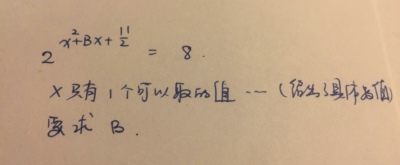 2^{x^2+Bx+\frac{11}{2}} = 8.
x只有1个可以取的值 ---- (给出了具体数值)
要求 B.